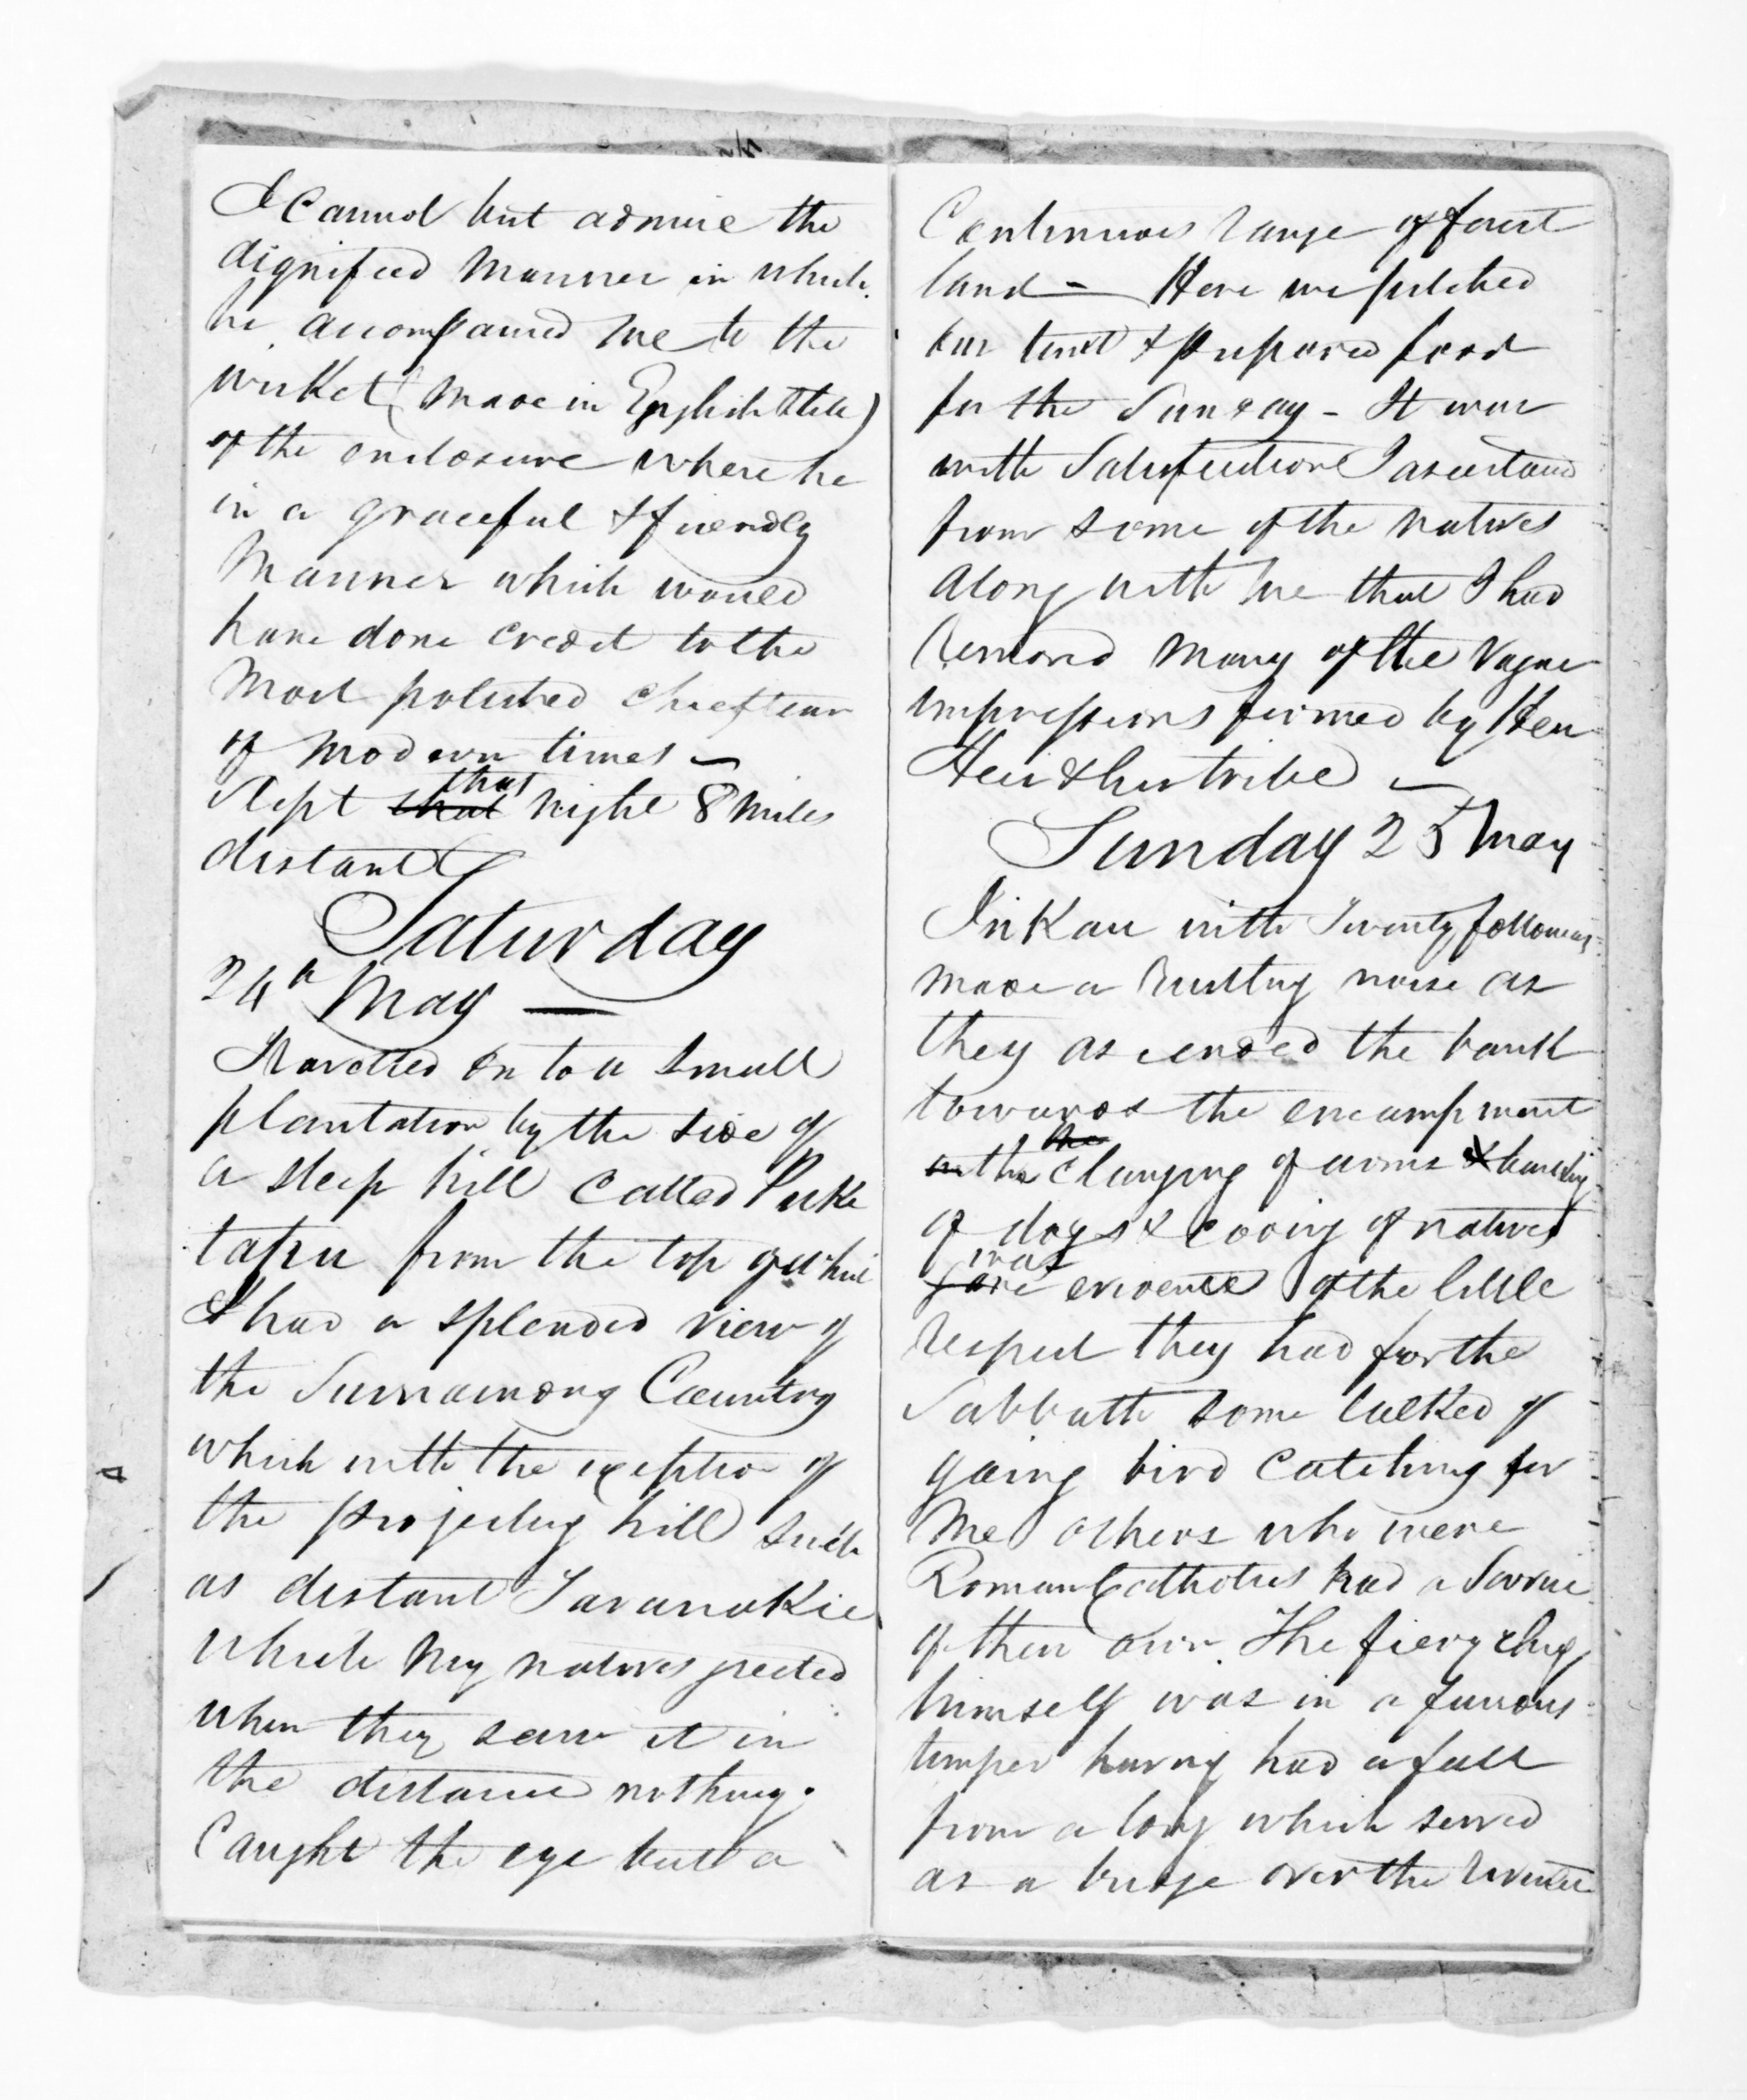 I cannot but admire the
dignified manner in which
he accompanied me to the
wicket (made in English Stile)
of the enclosure where he
in a graceful & friendly
manner which would
have done credit to the
most polished chieftean
of modern times —
Slept that that night 8 miles
distant
Saturday
24th May —
Travelled on to a small
plantation by the side of
a steep hill called Puke
tapu from the top of which
I had a splended view of
the Surrounding Country
which with the exception of
the projecting hill such
as distant Taranakie
which my natives greeted
when they saw it in
the distance nothing
caught the eye but a
Continuous range of forest
land — Here we pitched
our tent & prepared food
for the Sunday - It was
with Satisfaction I ascertaind
from some of the natives
along with me that I had
removed many of the vague
impressions formed by Heu
Heu & his tribe —
Sunday 25 May
Inkau with Twenty followers
made a rustling noise as
they ascended the bank
towards the encampment
the the clanging of arms &
of dogs & cooing of natives
was gave evidence of the little
respect they had for the
Sabbath some talked of
going bird catching for
me others who were
Roman Catholics had a
of their own. The fiery chief
himself was in a furious
temper having had a fall
from a log which served
as a bridge over the